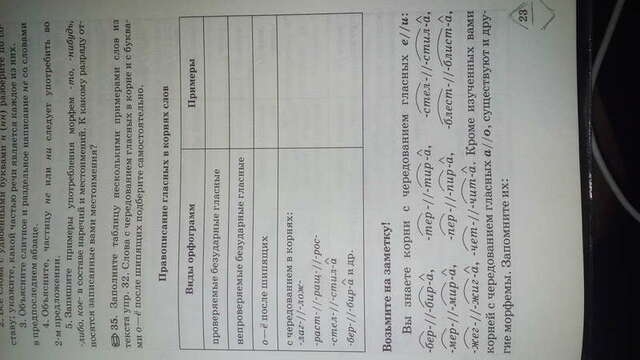 2. Все слова с удвоенными буквами н (нн) разберите по со-
ставу; укажите, какой частью речи является каждое из них.
3. Объясните слитное и раздельное написание не со словами
в предпоследнем абзаце.
4. Объясните, частицу не или ни следует употребить во
2-м предложении.
5. Запишите примеры употребления морфем -то, -нибудь,
-либо, кое- в составе наречий и местоимений. К какому разряду от-
носятся записанные вами местоимения?
35. Заполните таблицу несколькими примерами слов из
текста упр. 32. Слова с чередованием гласных в корне и с буква-
ми о—ё после шипящих подберите самостоятельно.
Правописание гласных в корнях слов
Виды орфограмм
Примеры
проверяемые безударные гласные
непроверяемые безударные гласные
о—ё после шипящих
с чередованием в корнях:
-лаг-//-лож-
-раст-//-ращ-//-рос-
-стел-//-стил-а
-бер-//-бир-а и др.
Возьмите на заметку!
Вы знаете корни с чередованием гласных е//и:
-бер-//-бир-а, -тер-//-тир-а, -стел-//-стил-а,
-мер-//-мир-а, -пер-//-пир-а, -блест-//-блист-а,
-жег-//-жиг-а, -чет-//-чит-а. Кроме изученных вами
корней с чередованием гласных а//о, существуют и дру-
гие морфемы. Запомните их:
23